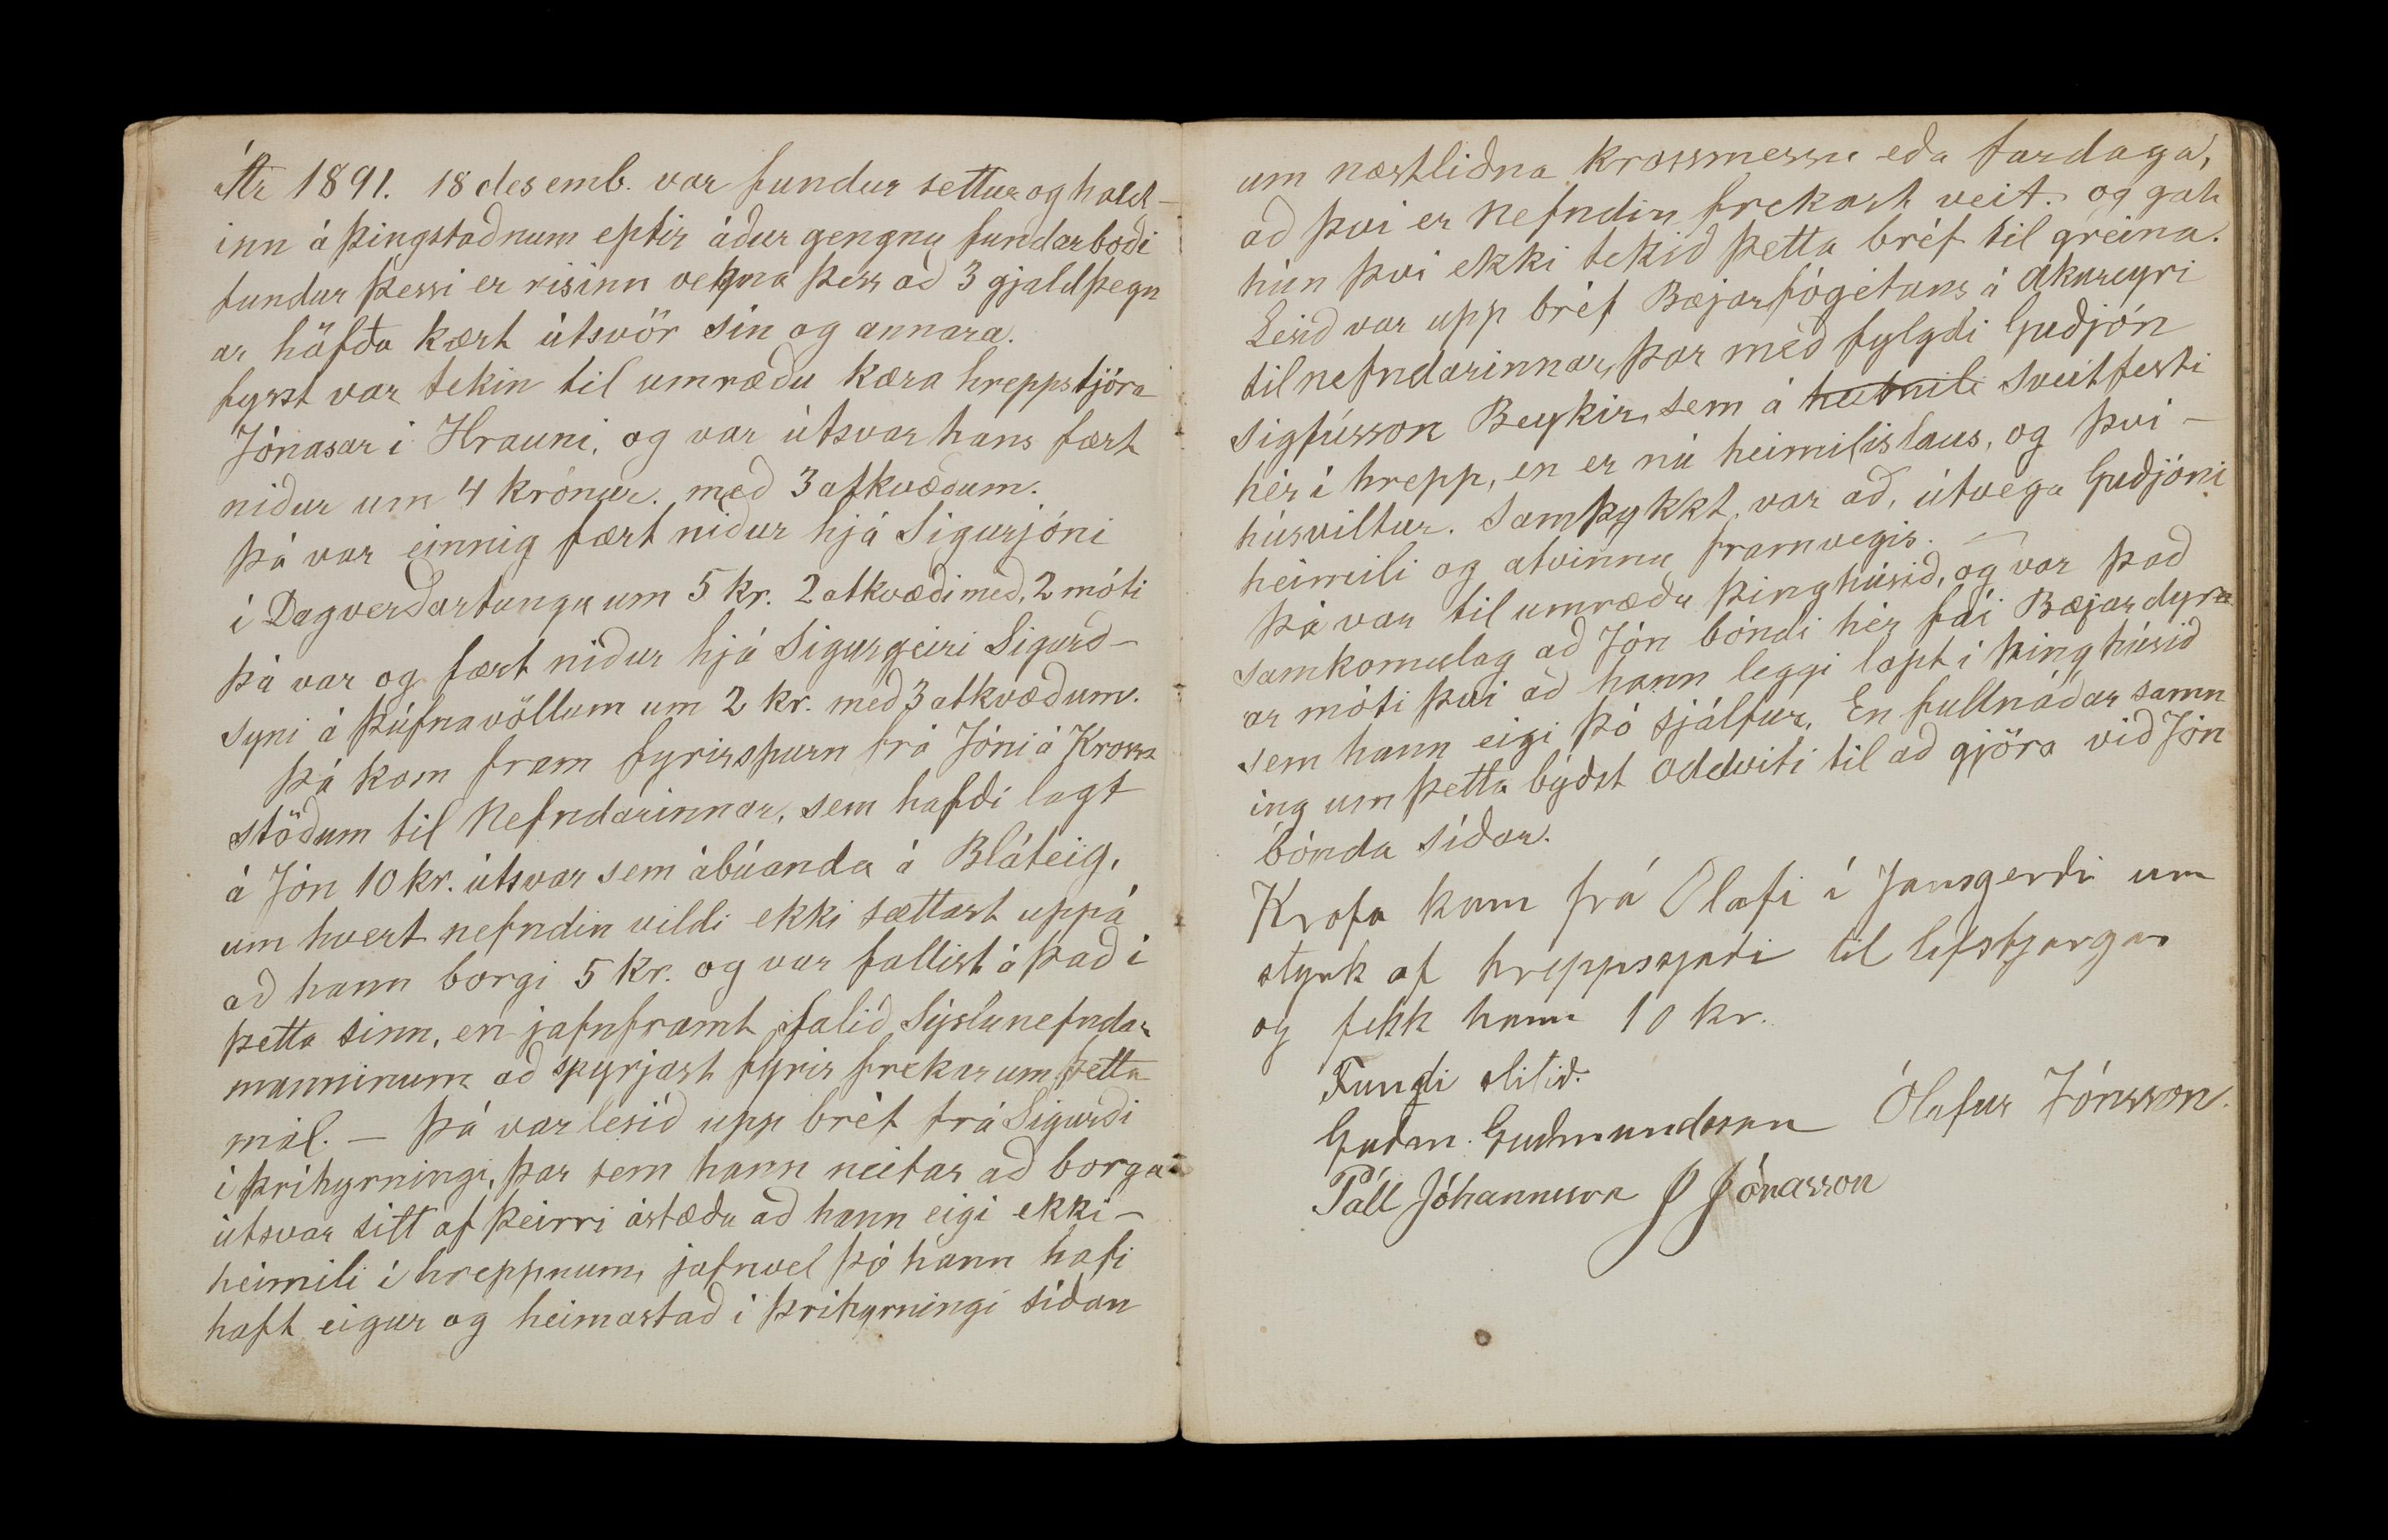 Ár 1891. 18 desemb. var fundur settur og hald-
inn á þingstaðnum eptir áður gengnu fundarboði
fundur þessi er risinn vegna þess að 3 gjaldþegn
ar höfða kært útsvör sín og annara.
fyrst var tekin til umræðu kæra hreppstjóra
Jónasar í Hrauni, og var útsvar hans fært
niður um 4 krónur. með 3 atkvæðum.
Þá var einnig fært niður hjá Sigurjóni
í Dagverðartungu um 5 kr. 2 atkvæði með, 2 móti
Þá var og fært niður hjá Sigurgeiri Sigurð-
syni á Þúfnavöllum um 2 kr. með 3 atkvæðum.
Þá kom fram fyrirspurn frá Jóni á Krossa
stöðum til Nefndarinnar, sem hafði lagt
á Jón 10 kr. útsvar sem ábúanda á Bláteig,
um hvert nefndin vildi ekki sættast uppá
að hann borgi 5 kr. og var fallist á það í
þetta sinn, en jafnframt falið Sýslunefndar
manninum að spyrjast fyrir frekar um þetta
mál. — Þá var lesið upp bréf frá Sigurði
í Þríhyrningi, þar sem hann neitar að borga
útsvar sitt af þeirri ástæðu að hann eigi ekki -
heimili í hreppnum, jafnvel þó hann hafi
haft eigur og heimastað í Þríhyrningi síðan
um næstliðna krossmessu eða fardaga,
að því er Nefndin frekast veit. og gat
hún því ekki tekið þetta bréf til greina.
Lesið var upp bréf Bæjarfógetans á Akureyri
til nefndarinnar, þar með fylgdi Guðjón
Sigfússon Beykir, sem á heimili sveitfesti
hér í hrepp, en er nú heimilislaus, og því -
húsviltur. Samþykkt var að, útvega Guðjóni
heimili og atvinnu framvegis. —
Þá var til umræðu þinghúsið, og var það
samkomulag að Jón bóndi hér fái Bæjardyra
ar móti því að hann leggi lopt í þinghúsið
sem hann eigi þó sjálfur. En fullnáðar samn
ing um þetta býðst Oddviti til að gjöra við Jón
bónda síðar.
Krafa kom frá Olafi í Jamgerði um
styrk af hreppssjóði til lífsbjargar
og fekk hann 10 kr.
Fundi slitið.
Guðm. Guðmundsson Ólafur Jónsson.
Páll Jóhannsson J Jónasson